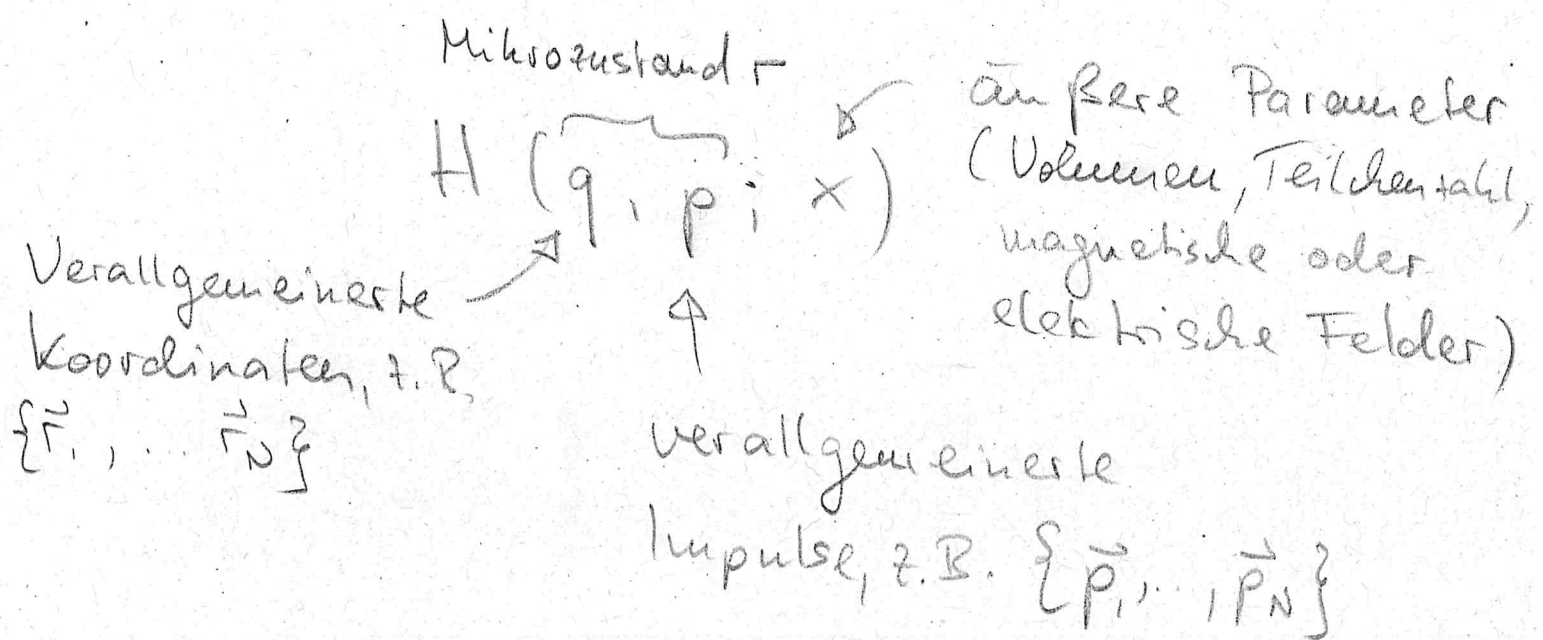 Mikrozustand r
H (q, p; x)
äußere Parameter
(Volumen, Teilchenzahl,
magnetische oder
elektrische Felder)
Verallgemeinerte
Koordinaten, z.B.
{r⃗₁, .. r⃗_N}
verallgemeinerte
Impulse, z.B. {p⃗₁, .., p⃗_N}